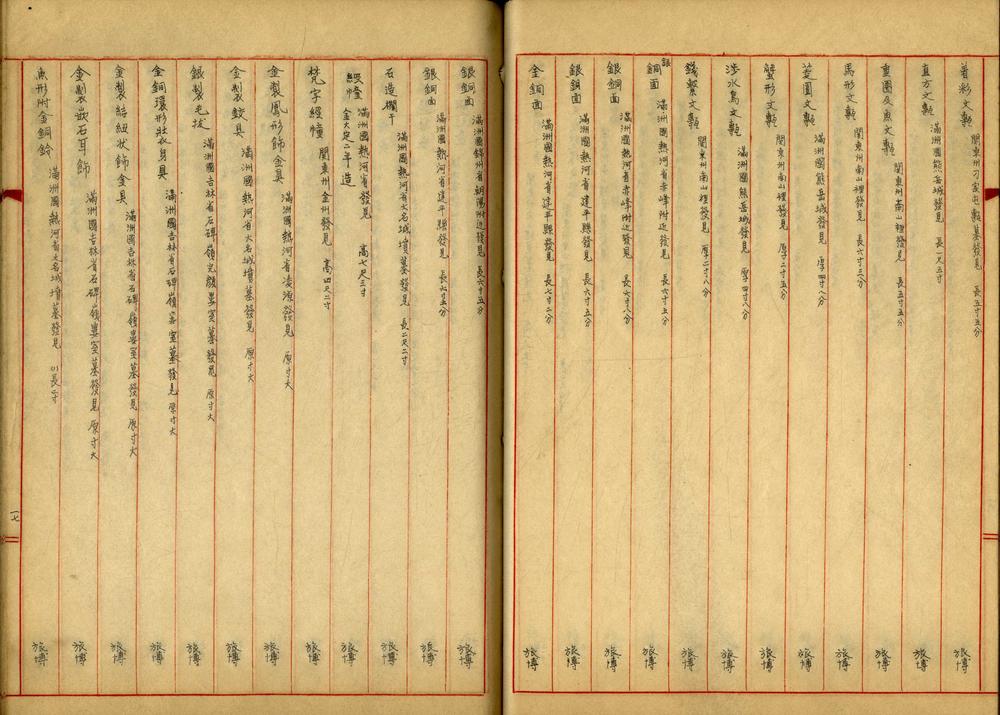 着彩文甎 關東州刁家屯甎墓發見 長五寸五分 旅博
直方文甎 滿洲國熊岳城發見 長一尺五寸 旅博
重圈及魚文甎 關東州南山裡發見 長五寸五分 旅博
馬形文甎 關東州南山裡發見 長六寸三分 旅博
菱圓文甎 滿洲國熊岳城發見 厚四寸八分 旅博
蟹形文甎 關東州南山裡發見 厚二寸五分 旅博
涉水鳥文甎 滿洲國熊岳城發見 厚四寸八分 旅博
錢繫文甎 關東州南山裡發見 厚二寸八分 旅博
銀銅面 滿洲國熱河省赤峰附近發見 長六寸五分 旅博
銀銅面 滿洲國熱河省赤峰附近發見 長六寸八分 旅博
銀銅面 滿洲國熱河省建平縣發見 長六寸五分 旅博
金銅面 滿洲國熱河省建平縣發見 長七寸二分 旅博
銀銅面 滿洲國錦州省朝陽附近發見 長六寸五分 旅博
銀銅面 滿洲國熱河省建平縣發見 長六寸五分 旅博
石造欄干 滿洲國熱河省大名城墳墓發見 長二尺二寸 旅博
經幢 滿洲國熱河省發見 高七尺三寸 旅博
金大定二年造
梵字經幢 關東州金州發見 高四尺二寸 旅博
金製鳳形飾金具 滿洲國熱河省凌源發見 原寸大 旅博
金製鉸具 滿洲國熱河省大名城墳墓發見 原寸大 旅博
銀製毛拔 滿洲國吉林省石碑嶺完顏婁室墓發見 原寸大 旅博
金銅環形狀衣身具 滿洲國吉林省石碑嶺婁室墓發見 原寸大 旅博
金製結紐狀飾金具 滿洲國吉林省石碑嶺婁室墓發見 原寸大 旅博
金製嵌石耳飾 滿洲國吉林省石碑嶺婁室墓發見 原寸大 旅博
魚形附金銅鈴 滿洲國熱河省大名城墳墓發見 長寸 旅博
一七